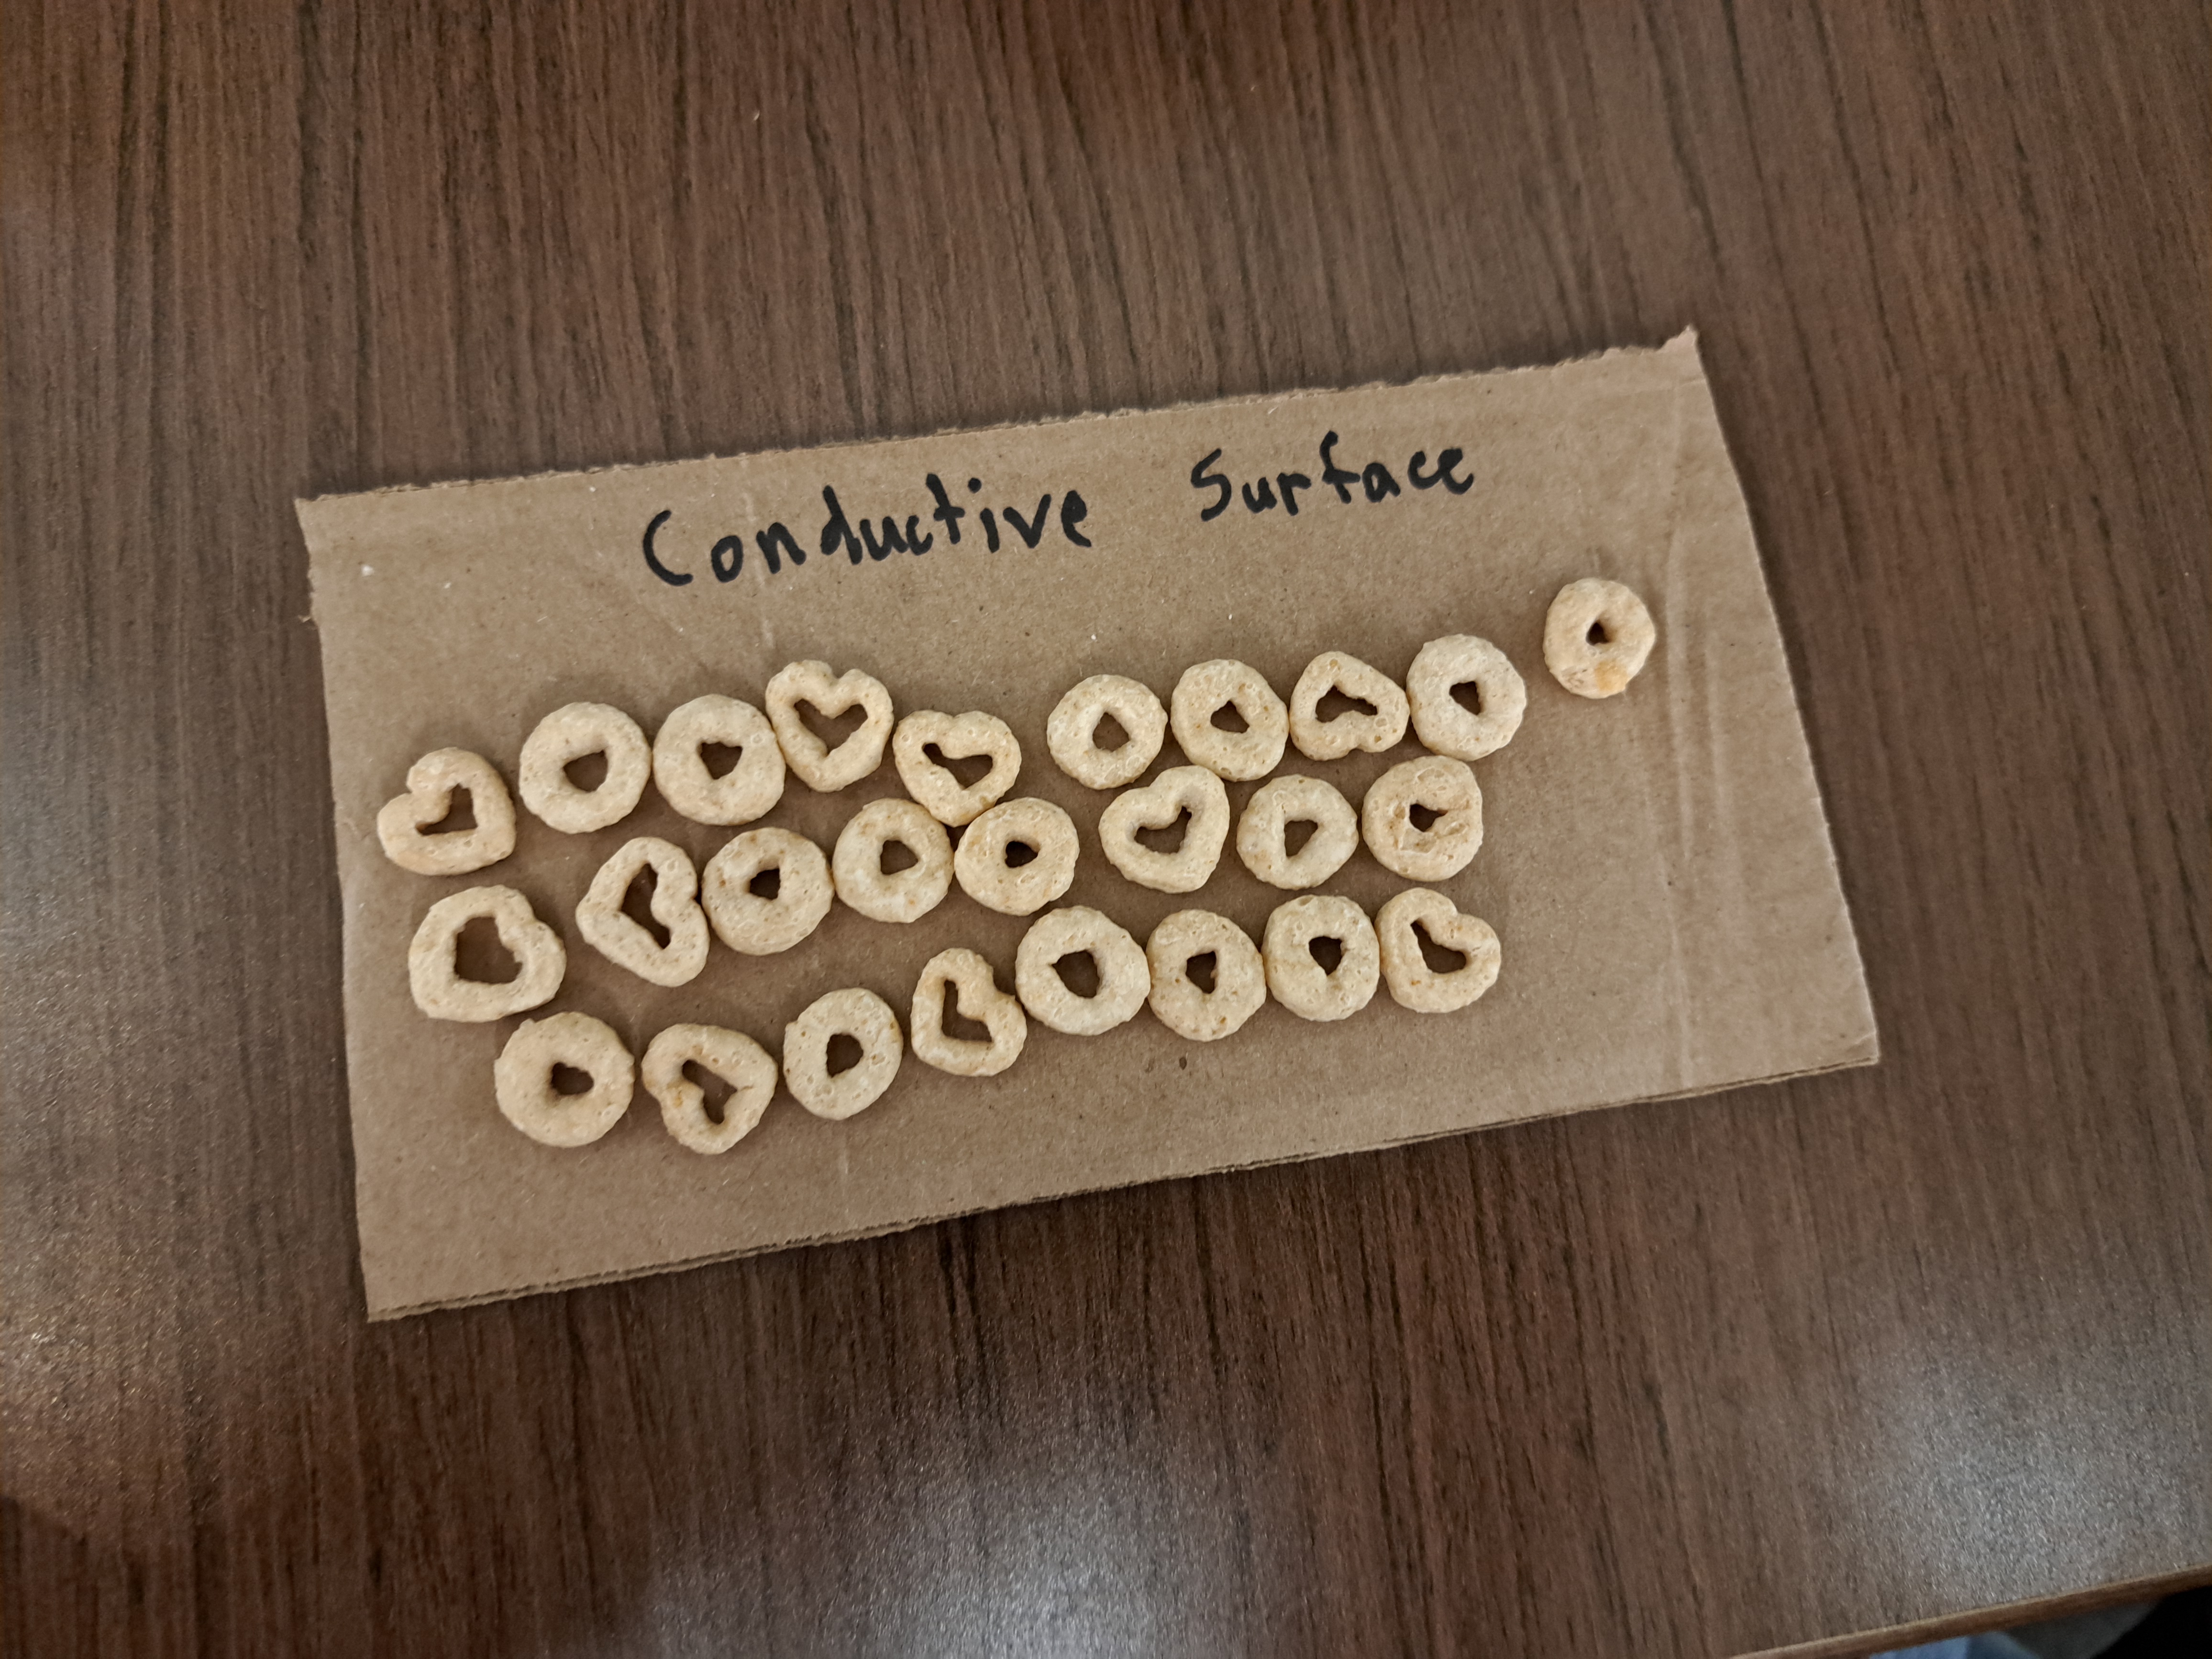 Conductive Surface